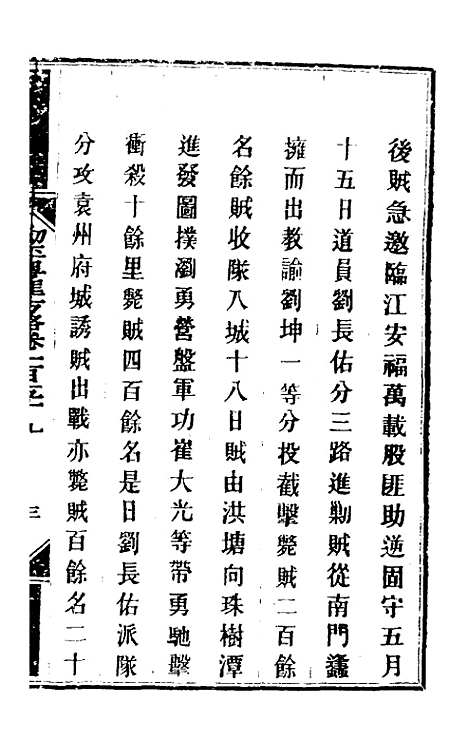 後賊急邀臨江安福萬載股匪助逆固守五月
十五日道員劉長佑分三路進勦賊從南門蠭
擁而出教諭劉坤一等分投截擊斃賊二百餘
名餘賊收隊入城十八日賊由洪塘向珠樹潭
進發圖撲瀏勇營盤軍功崔大光等帶勇馳擊
衝殺十餘里斃賊四百餘名是日劉長佑派隊
分攻袁州府城誘賊出戰亦斃賊百餘名二十
方略卷一百五十九
三